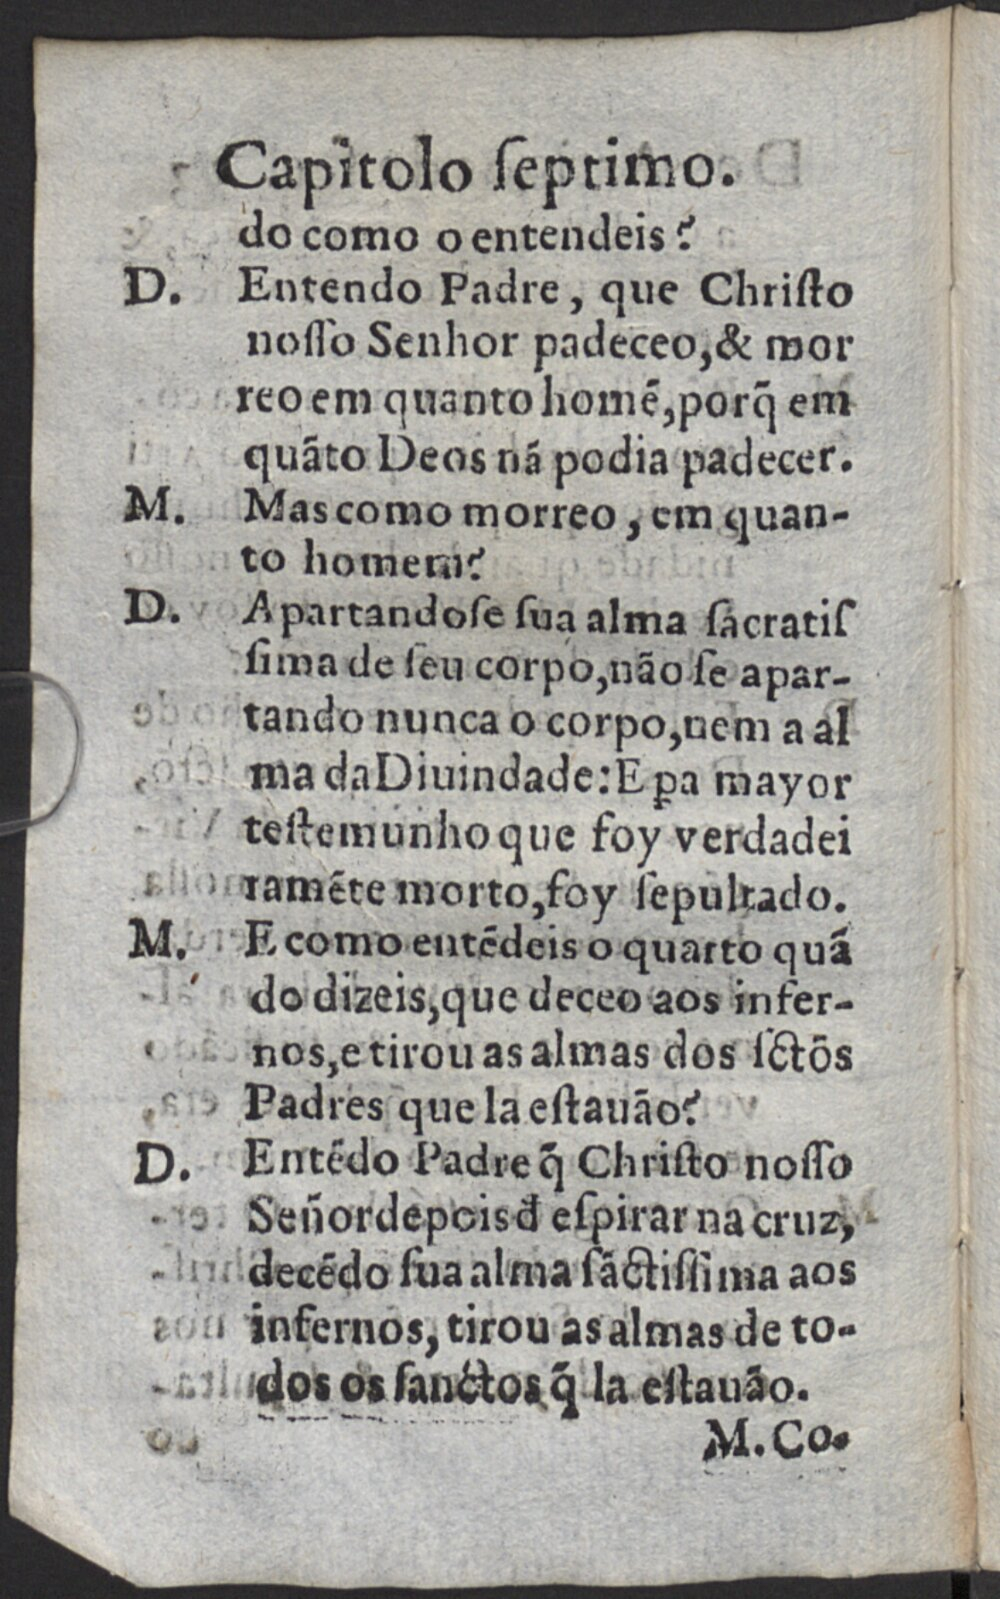 Capitolo ſeptimo.
do como o entendeis?
D. Entendo Padre, que Chriſto
noſſo Senhor padeceo, & mor
reo em quanto homẽ, porq̃ em
quãto Deos nã podia padecer.
M. Mas como morreo, em quan-
to homem?
D. Apartandoſe ſua alma ſacratiſ
ſima de ſeu corpo, não ſe apar-
tando nunca o corpo, nem a al
ma da Diuindade: E ꝑa mayor
teſtemunho que foy verdadei
ramẽte morto, foy ſepultado.
M. E como entẽdeis o quarto quã
do dizeis, que deceo aos infer-
nos, e tirou as almas dos ſctõs
Padres que la eſtauão?
D. Entẽdo Padre q̃ Chriſto noſſo
Señor depois đ eſpirar na cruz,
decẽdo ſua alma ſãctiſſima aos
infernos, tirou as almas de to-
dos os ſanctos q̃ la eſtauão.
M. Co.